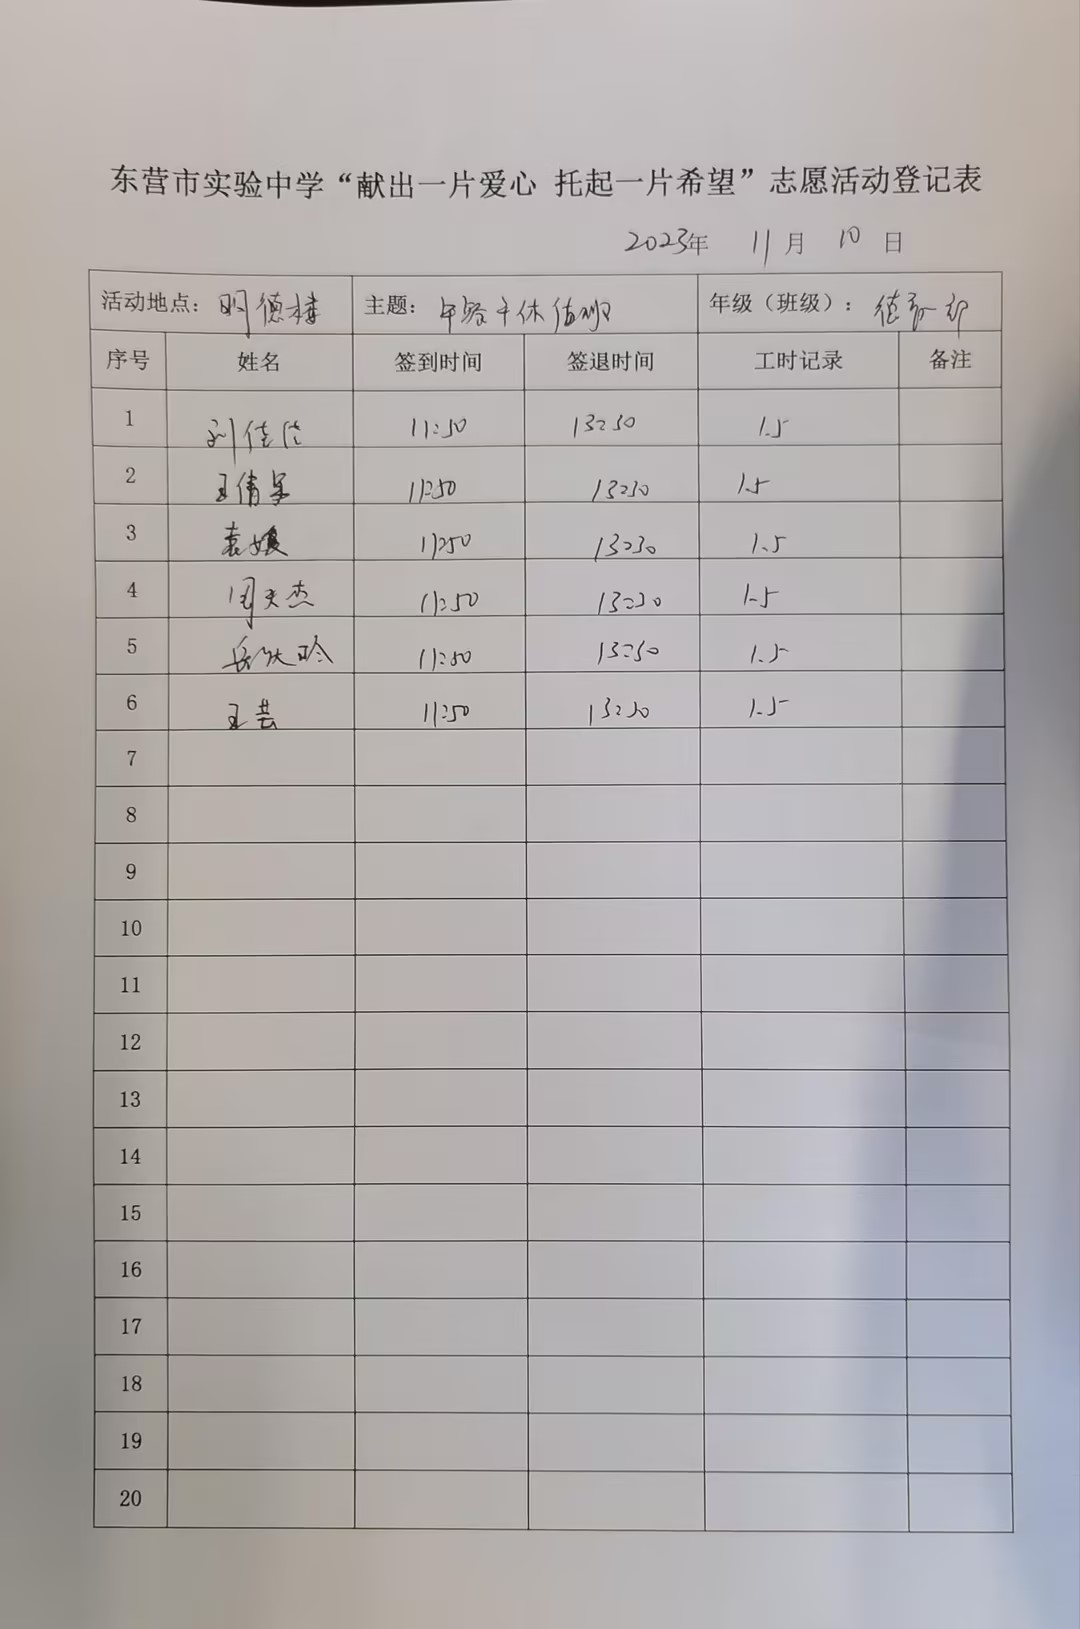 东营市实验中学“献出一片爱心 托起一片希望”志愿活动登记表
2023年 11月 10日
活动地点：明德楼 主题：午餐午休值班 年级（班级）：德育部
序号 姓名 签到时间 签退时间 工时记录 备注
1 刘佳佳 11:50 13:30 1.5
2 王倩 11:50 13:30 1.5
3 袁媛 11:50 13:30 1.5
4 周天杰 11:50 13:30 1.5
5 11:50 13:30 1.5
6 王芸 11:50 13:30 1.5
7
8
9
10
11
12
13
14
15
16
17
18
19
20